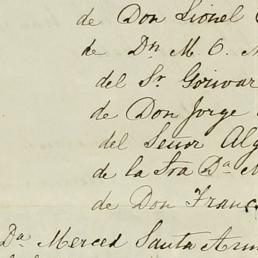 de Don Lionel
de Dn M. O.
del Sr Goriwar
de Don Jorge
del Señor Alg
de la Sra Da M
de Don Franc
Da Merced Santa Ann